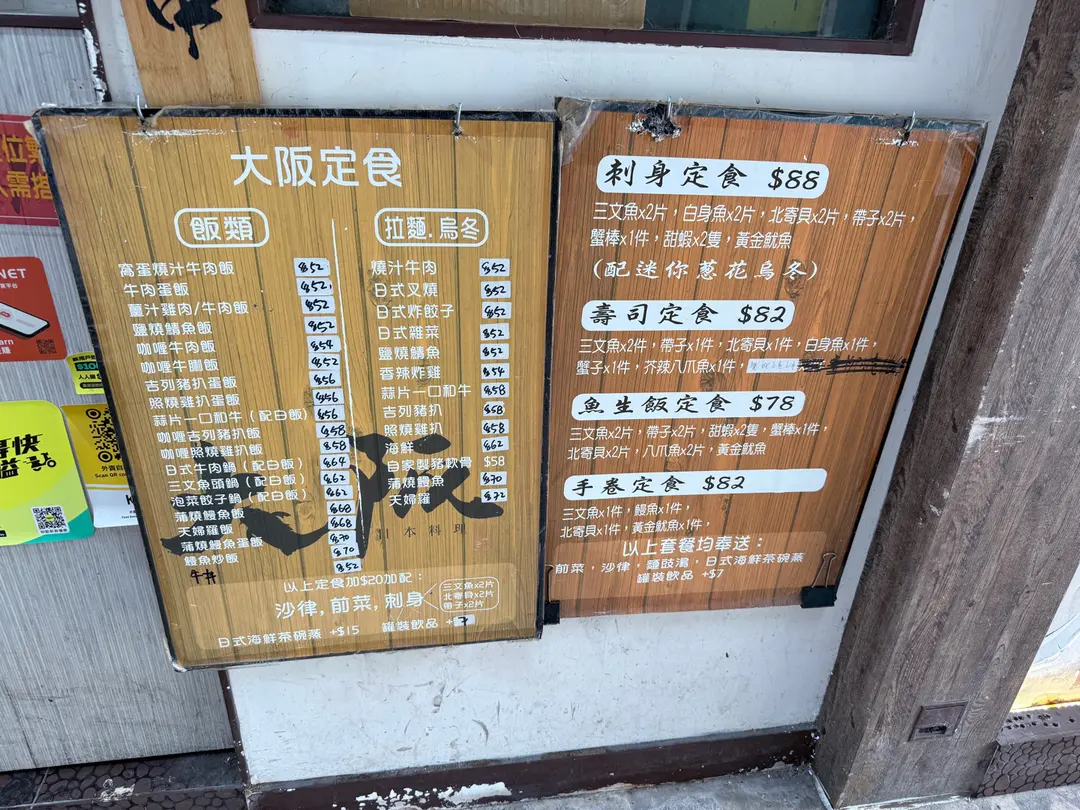 大阪定食
飯類
窩蛋燒汁牛肉飯 $52
牛肉蛋飯 $52
薑汁雞肉/牛肉飯 $52
鹽燒鯖魚飯 $52
咖喱牛肉飯 $54
咖喱牛腩飯 $52
吉列豬扒蛋飯 $56
照燒雞扒蛋飯 $56
蒜片一口和牛（配白飯） $56
咖喱吉列豬扒飯 $58
咖喱照燒雞扒飯 $58
日式牛肉鍋（配白飯） $64
三文魚頭鍋（配白飯） $62
泡菜餃子鍋（配白飯） $62
蒲燒鰻魚飯 $68
天婦羅飯 $68
蒲燒鰻魚蛋飯 $70
鰻魚炒飯 $70
牛丼 $52
拉麵.烏冬
燒汁牛肉 $52
日式叉燒 $52
日式炸餃子 $52
日式雜菜 $52
鹽燒鯖魚 $52
香辣炸雞 $54
蒜片一口和牛 $58
吉列豬扒 $58
照燒雞扒 $58
海鮮 $62
自家製豬軟骨 $58
蒲燒鰻魚 $70
天婦羅 $72
日本料理
以上定食加$20加配：
沙律,前菜,刺身
三文魚x2片
北寄貝x2片
帶子x2片
日式海鮮茶碗蒸 +$15 罐裝飲品 +$7
刺身定食 $88
三文魚x2片，白身魚x2片，北寄貝x2片，帶子x2片，
蟹棒x1件，甜蝦x2隻，黃金魷魚
(配迷你蔥花烏冬)
壽司定食 $82
三文魚x2件，帶子x1件，北寄貝x1件，白身魚x1件，
蟹子x1件，芥辣八爪魚x1件，
魚生飯定食 $78
三文魚x2片，帶子x2片，甜蝦x2隻，蟹棒x1件，
北寄貝x2片，八爪魚x2片，黃金魷魚
手卷定食 $82
三文魚x1件，鰻魚x1件，
北寄貝x1件，黃金魷魚x1件，
以上套餐均奉送：
前菜，沙律，麵豉湯，日式海鮮茶碗蒸
罐裝飲品 +$7
Scan QR code